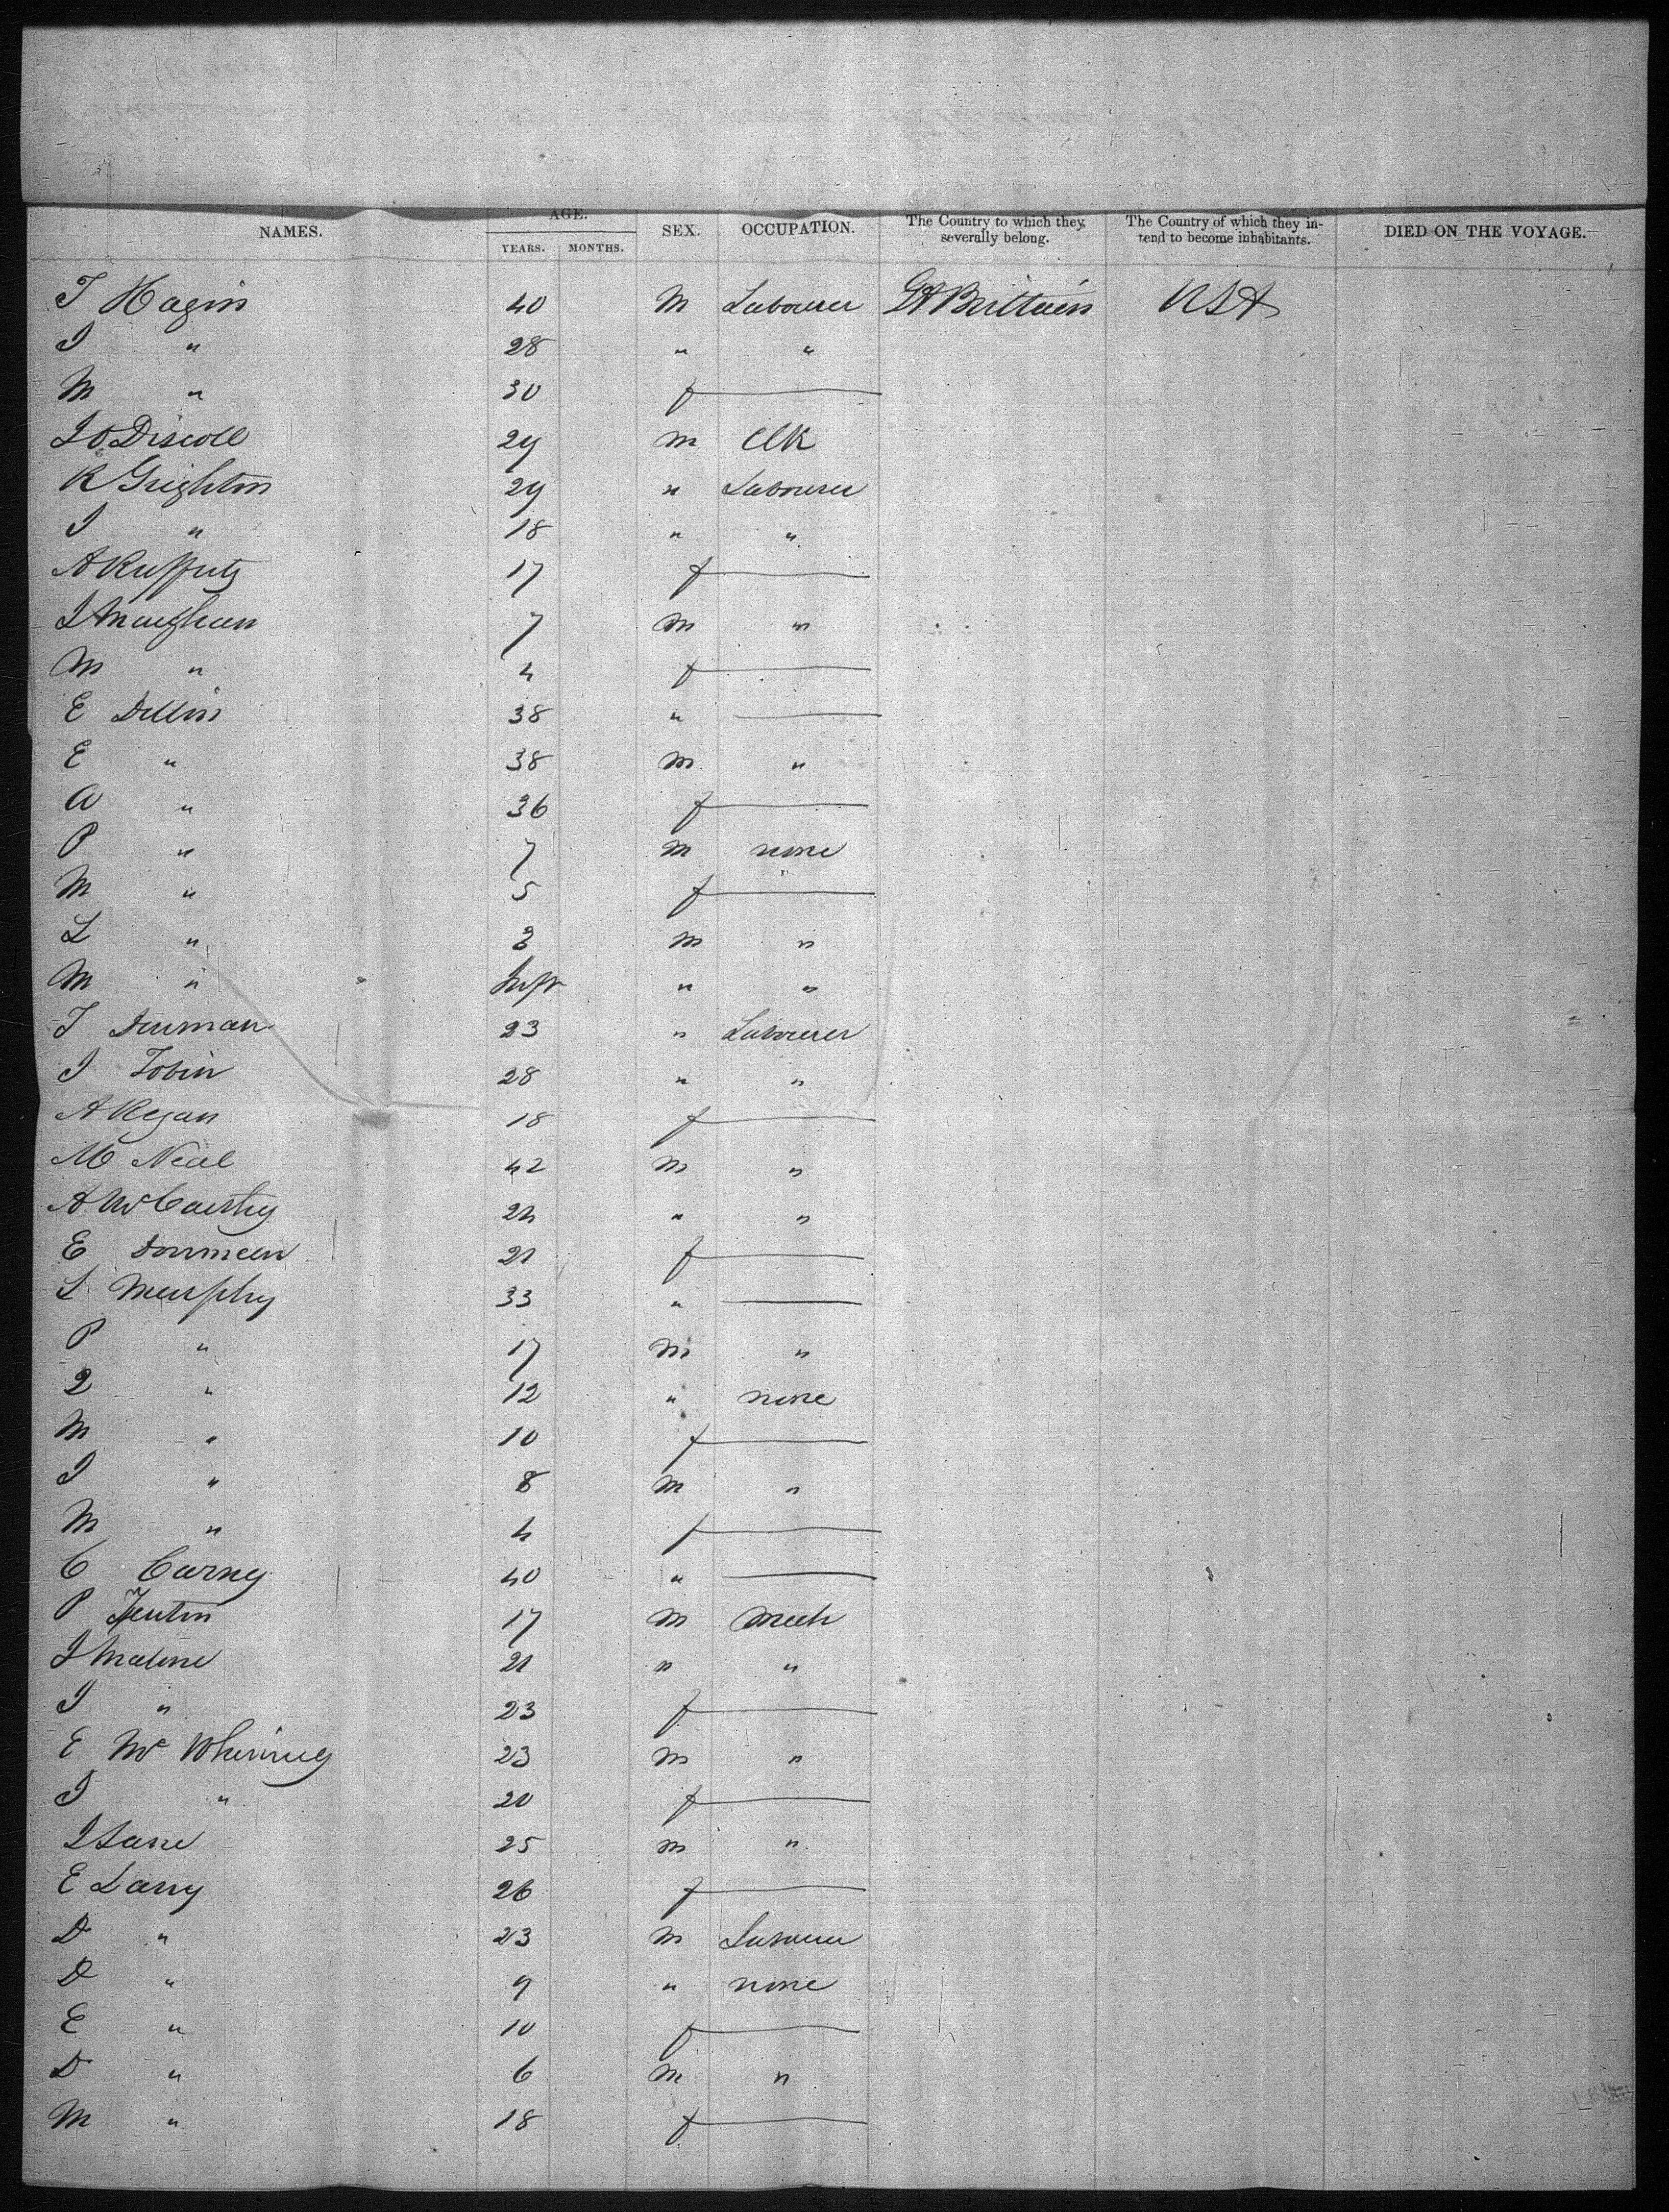 NAMES. AGE. YEARS. MONTHS. SEX. OCCUPATION. The Country to which they severally belong. The Country of which they intend to become inhabitants. DIED ON THE VOYAGE.
T Hagin 40 M Labourer Gt Brittain USA
J " 28 " "
M " 30 f
J O Discoll 29 m Clk
R Grighton 29 " Labourer
J " 18 " "
A 17 f
J Maughan 7 m "
M " 4 f
E Dillin 38 "
E " 38 m "
A " 36 f
P " 7 m none
M " 5 f
L " 3 m "
M " Inft " "
T Denman 23 " Labourer
J Tobin 28 " "
A Regan 18 f
M Neal 42 m "
A McCarthy 24 " "
E 21 f
L Murphy 33 "
P " 17 m "
J " 12 " none
M " 10 f
J " 8 m "
M " 4 f
C Carney 40 "
P Fentin 17 m Mech
J Malone 21 " "
J " 23 f
E Mc 23 m "
J " 20 f
J Lane 25 m "
E Larry 26 f
D " 23 m Labourer
D " 9 " none
E " 10 f
D " 6 m "
M " 18 f